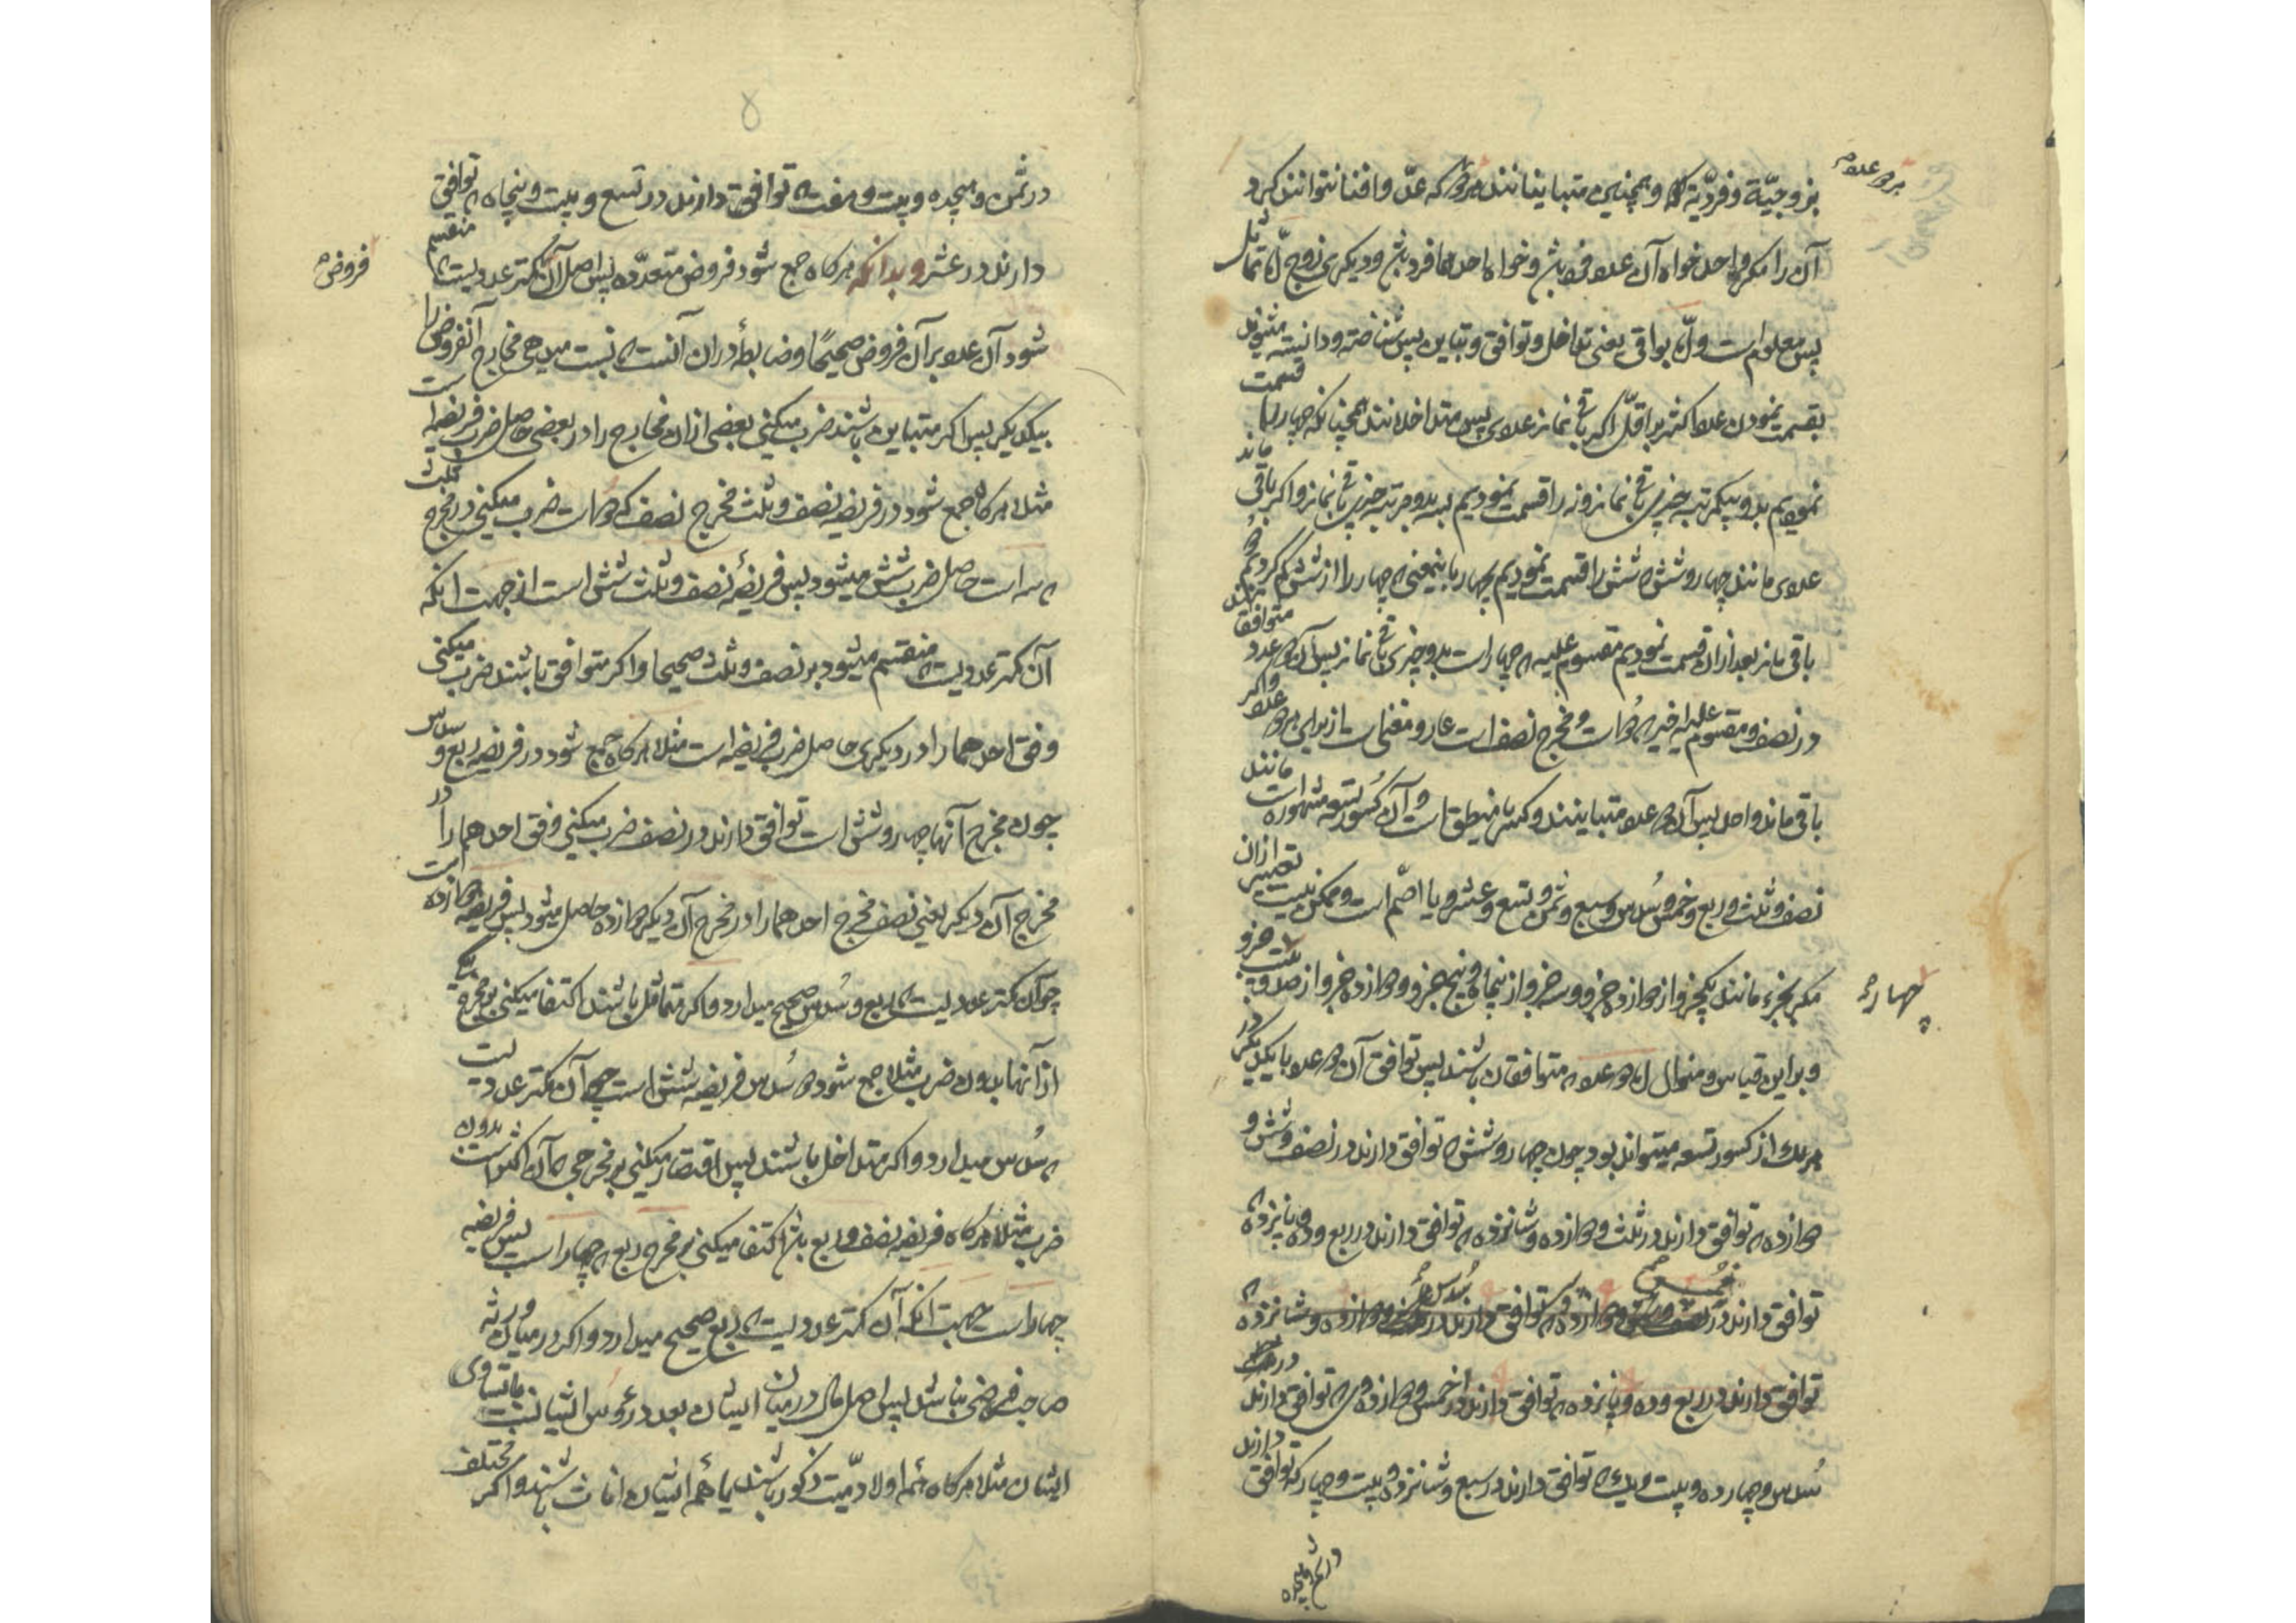 بزوجیّة و فردیّة و همچنین متباینانند هر دو که عدّ و افنا نتوانند کرد
آن را مگر واحد خواه آن عدد فرد باشد و خواه احدهما فرد باشد و دیگری زوج امّا تماثل
پس معلوم است و امّا بواقی یعنی تداخل و توافق و تباین پس شناخته و دانسته میشوند
بقسمت نمودن عدد اکثر بر اقلّ اگر باقی نماند عددی پس متداخلانند همچنانکه چهار را قسمت
نمودیم بدو بیکمرتبه چیزی باقی نماند و نه را قسمت نمودیم بسه بدو مرتبه چیزی باقی نماند و اگر باقی ماند
عددی مانند چهار و شش که شش را قسمت نمودیم بچهار باینمعنی که چهار را از شش کم کردیم دو
باقی ماند بعد از آن قسمت نمودیم مقسوم علیه که چهار است بدو چیزی باقی نماند پس آن دو عدد متوافقانند
در نصف و مقسوم علیه اخیر که دو است و مخرج نصف است عادّ و مفنی است از برای هر دو عدد و اگر
باقی ماند واحد پس آن دو عدد متباینند و کسر یا منطق است و آن کسور تسعه مشهوره است مانند
نصف و ثلث و ربع و خمس و سدس و سبع و ثمن و تسع و عشر و یا اصمّ است و ممکن نیست تعبیر از آن
مگر بجزء مانند یکجزو از دوازده جزو و سه جزو از پنجاه و پنج جزو و دوازده جزو از صد و بیست جزو
و براین قیاس و منوال اند دو عدد که متوافقان باشند پس توافق آن دو عدد با یکدیگر در
هر یک از کسور تسعه میتواند بود چون چهار و شش که توافق دارند در نصف و شش و
دوازده که توافق دارند در ثلث و دوازده و شانزده که توافق دارند در ربع و ده و پانزده که
توافق دارند در خمس
توافق دارند در ربع و ده و پانزده که توافق دارند در خمس و دوازده که توافق دارند در
سدس و چهارده و بیست و یک که توافق دارند در سبع و شانزده و بیست و چهار که توافق دارند
هر دو عدد
چهار
در ثمن و هیجده و بیست و هفت که توافق دارند در تسع و بیست و پنجاه که توافق
دارند در عشر و بدانکه هر گاه جمع شود فروض متعدّده پس اصل آن کمتر عددیست که منقسم
شود آن عدد بر آن فروض صحیحًا و ضابطهٔ در آن آنست که نسبت میدهی مخارج آنفروض را
بیکدیگر پس اگر متباین باشند ضرب میکنی بعضی از آن مخارج را در بعضی حاصل ضرب فریضه است
مثلا هر گاه جمع شود در فریضه نصف و ثلث مخرج نصف که دو است ضرب میکنی در مخرج ثلث
که سه است حاصل ضرب شش میشود پس فریضهٔ نصف و ثلث شش است از جهت آنکه
آن کمتر عددیست که منقسم میشود بر نصف و ثلث صحیحا و اگر متوافق باشند ضرب میکنی
وفق احدهما را در دیگری حاصل ضرب فریضه است مثلا هر گاه جمع شود در فریضه ربع و سدس
چون مخرج آنها چهار و شش است توافق دارند در نصف ضرب میکنی وفق احدهما را در
مخرج آن دیگر یعنی نصف مخرج احدهما را در مخرج آن دیگر دوازده حاصل میشود پس فریضه دوازده است
چو آن کمتر عددیست که ربع و سدس صحیح میدارد و اگر متماثل باشند اکتفا میکنی بر مخرج یکی
از آنها بدون ضرب مثلا جمع شود دو سدس فریضه شش است چه آن کمتر عددیست
که سدس میدارد و اگر متداخل باشند پس اقتصار میکنی بر مخرجی که آن اکثر است بدون
ضرب مثلا هر گاه فریضه نصف و ربع باشد اکتفا میکنی بر مخرج ربع که چهار است پس فریضه
چهار است جهت آنکه آن کمتر عددیست که ربع صحیح میدارد و اگر در میان ورثه
صاحب فرضی نباشد پس اصل مال در میان ایشان بعدد رؤس ایشانست با تساوی
ایشان مثلا هر گاه همه اولاد میّت ذکور باشند یا همه ایشان اناث باشند و اگر مختلف
فروض